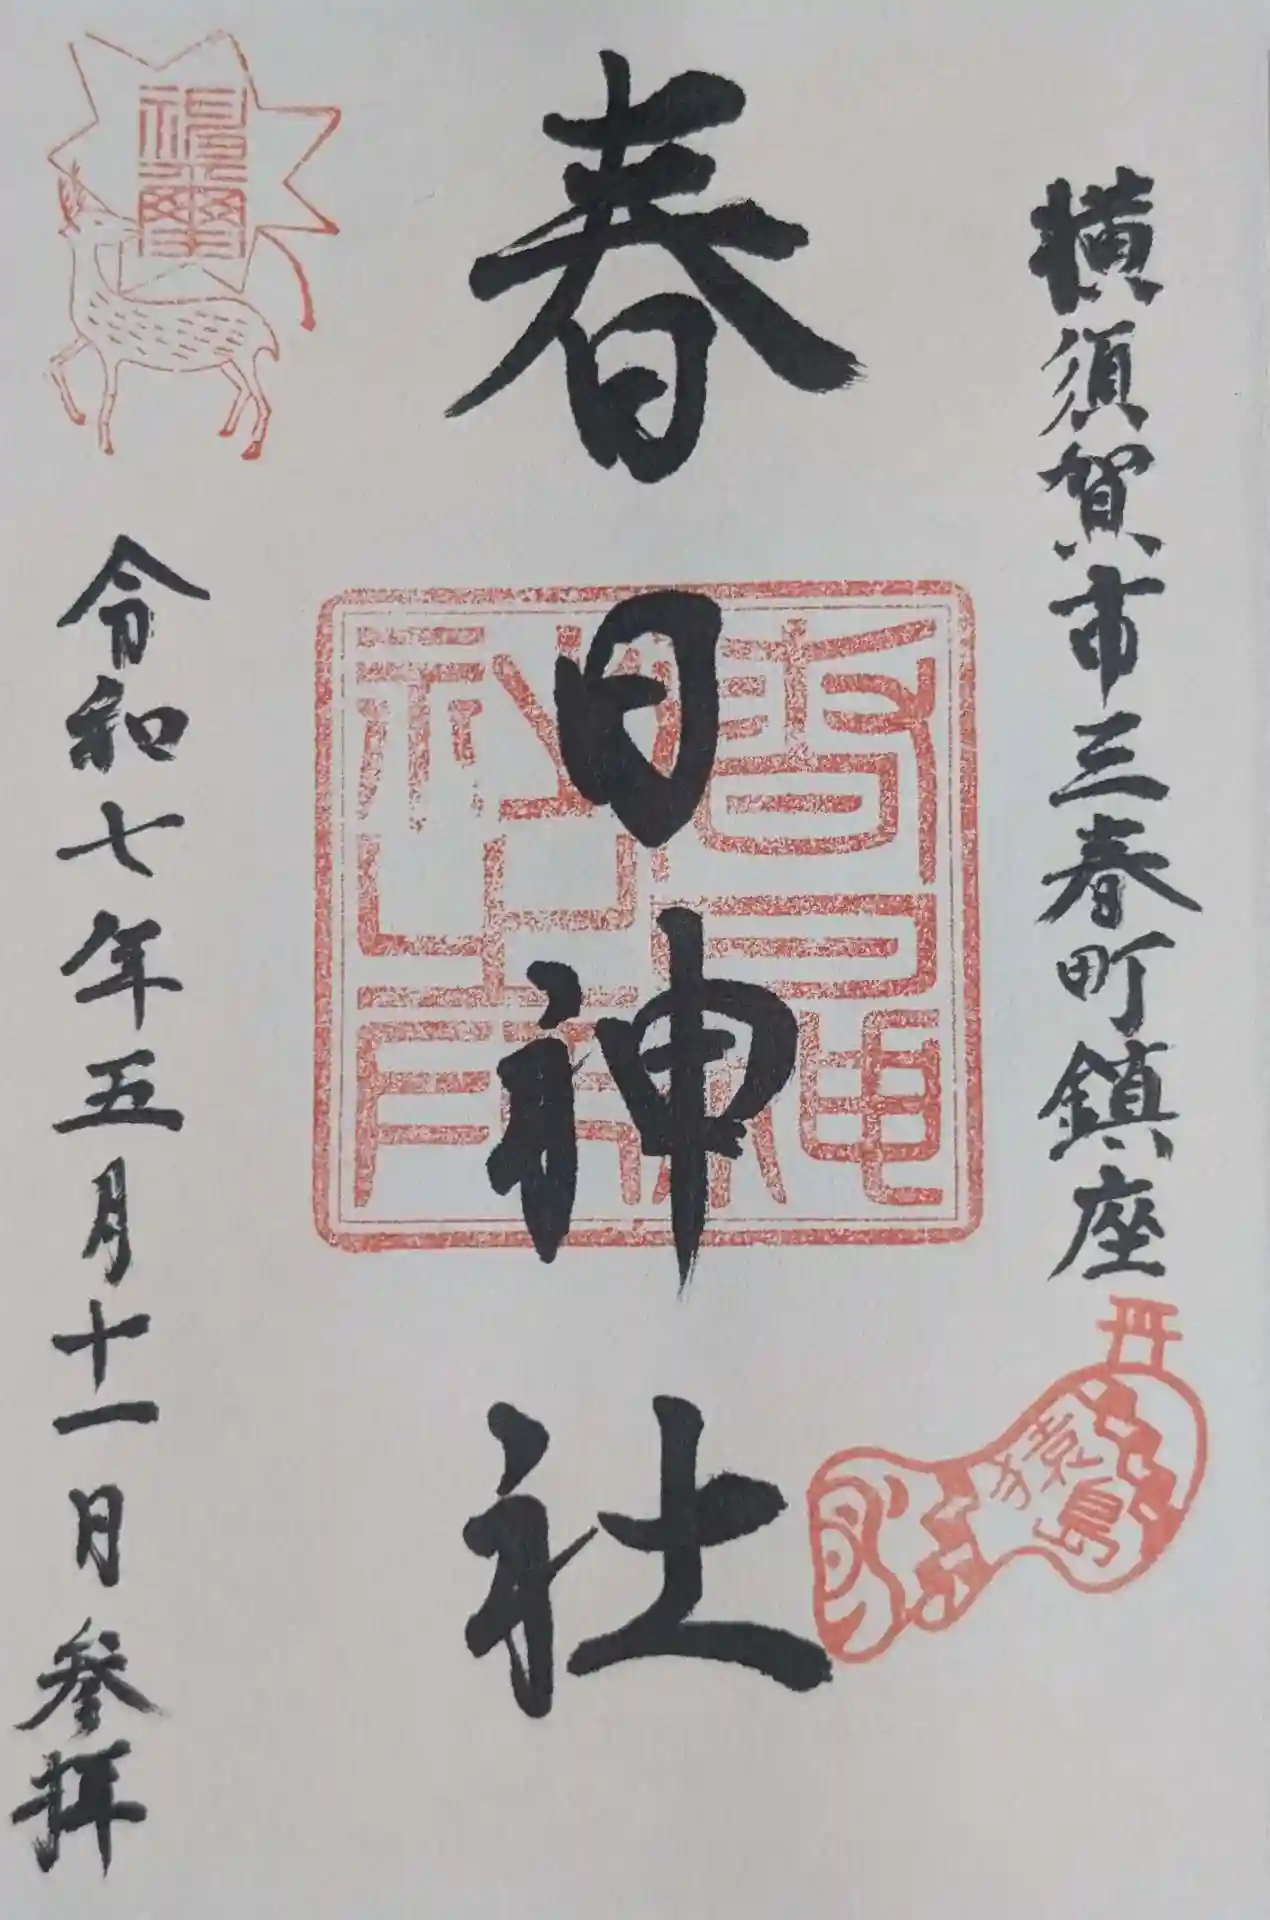 横須賀市三春町鎮座
猿島
春日神社
令和七年五月十一日参拝